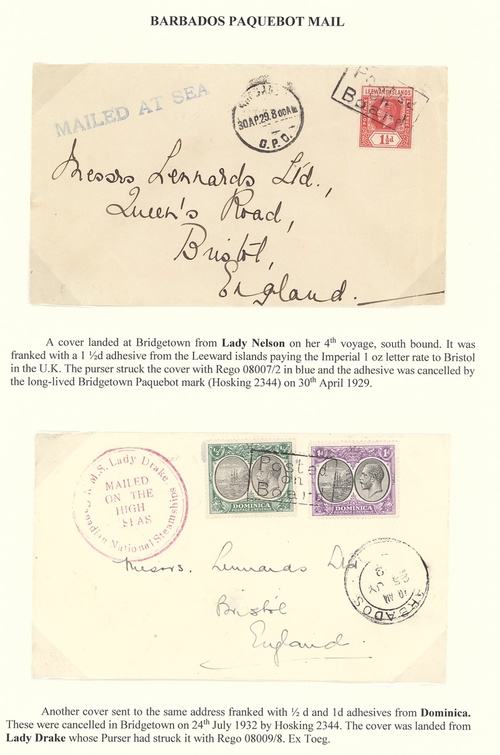 BARBADOS PAQUEBOT MAIL
MAILED AT SEA
30 AP. 29. 8 00 AM
G.P.O.
Posted
on
Board
LEEWARD ISLANDS
1½d
Messrs Lennards Ltd.,
Queen's Road,
Bristol,
England.
A cover landed at Bridgetown from Lady Nelson on her 4th voyage, south bound. It was
franked with a 1 ½d adhesive from the Leeward islands paying the Imperial 1 oz letter rate to Bristol
in the U.K. The purser struck the cover with Rego 08007/2 in blue and the adhesive was cancelled by
the long-lived Bridgetown Paquebot mark (Hosking 2344) on 30th April 1929.
R.M.S. Lady Drake
MAILED
ON THE
HIGH
SEAS
Canadian National Steamships
Posted
on
Board
DOMINICA
1d
DOMINICA
Messrs. Lennards Ltd
Bristol
England.
BARBADOS
Another cover sent to the same address franked with ½ d and 1d adhesives from Dominica.
These were cancelled in Bridgetown on 24th July 1932 by Hosking 2344. The cover was landed from
Lady Drake whose Purser had struck it with Rego 08009/8. Ex Toeg.